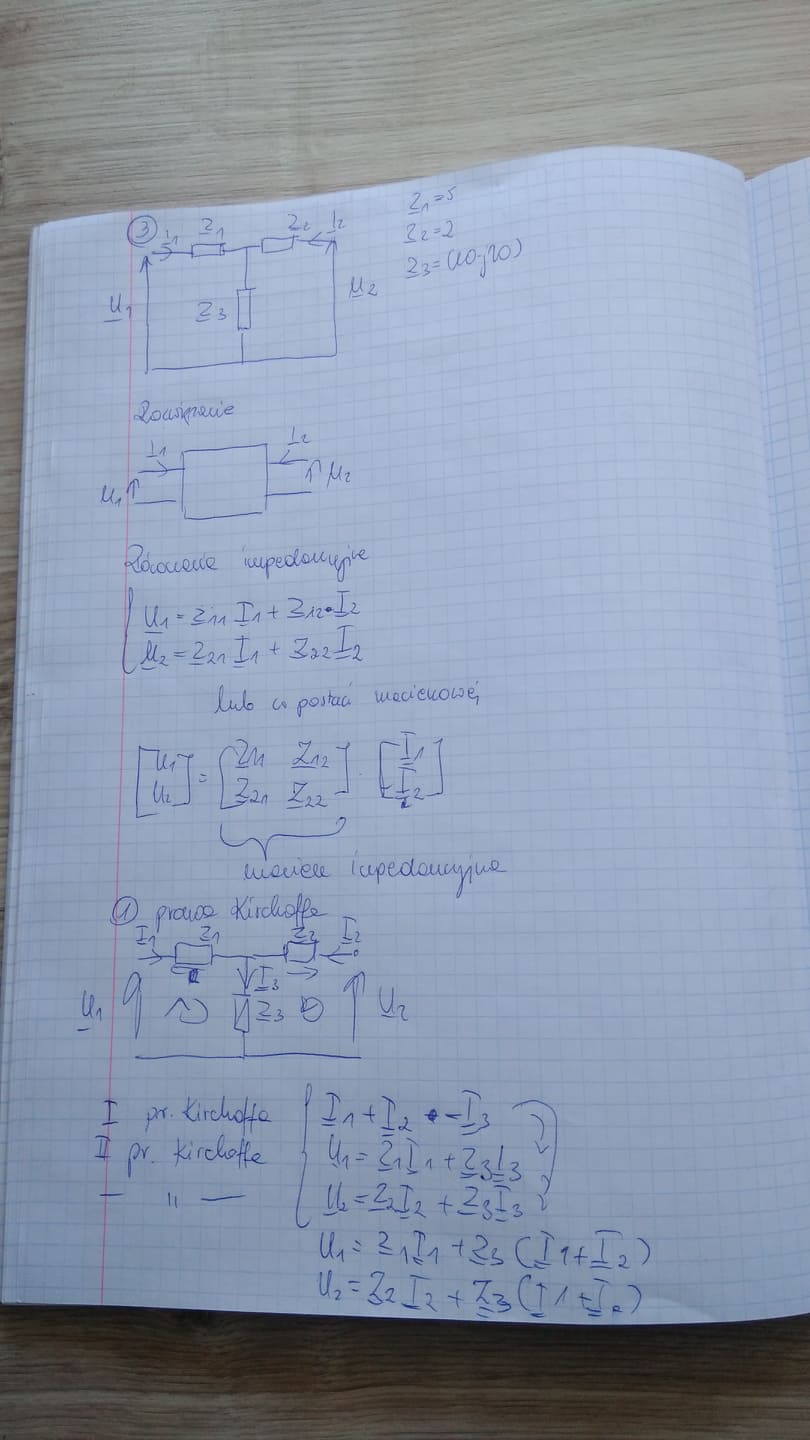 ③ I1 Z1 Z2 I2
Z1=5
Z2=2
Z3=(10-j10)
U1 Z3 U2
Rozwiązanie
I1 I2
U1 U2
Równanie impedancyjne
U1 = Z11 I1 + Z12 • I2
U2 = Z21 I1 + Z22 I2
lub w postaci macierzowej
[U1 U2] = [Z11 Z12 Z21 Z22] · [I1 I2]
macierz impedancyjna
① prawa Kirchoffa
I1 Z1 Z2 I2
U1 I3 Z3 U2
I pr. Kirchoffa I1 + I2 = I3
II pr. Kirchoffa U1 = Z1 I1 + Z3 I3
— " — U2 = Z2 I2 + Z3 I3
U1 = Z1 I1 + Z3 (I1 + I2)
U2 = Z2 I2 + Z3 (I1 + I2)